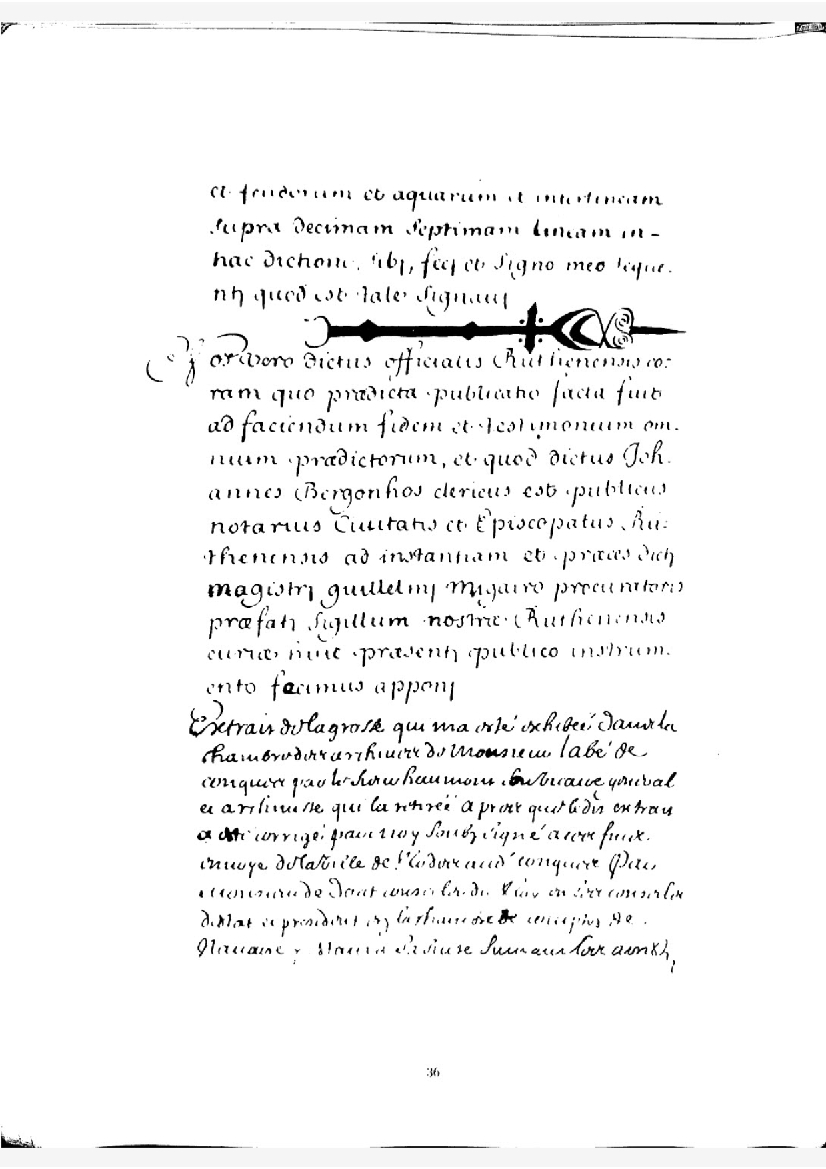 et feudorum et aquarum et interlineam
supra decimam septimam lineam in -
hac dictione, sibj, fecj et signo meo seque.
ntj quod est tale signavj
Nos vero dictus officialis Ruthenensis co:
ram quo predicta publicatio facta fuit
ad faciendum fidem et testimonium om.
nium predictorum, et quod dictus Joh.
annes Bergonhos clericus est publicus
notarius Civitatis et Episcopatus Ru:
thenensis ad instantiam et præces dictj
magistrj guillelmj Migairo procuratoris
præfatj sigillum nostræ Ruthenensis
curiæ huic præsentj publico instrum.
ento facimus apponj
Extrait de la grosse qui ma esté exhibée dans la
chambre des archives de Monsieur labé de
conques par le sieur
et archivisse qui la retirée a pres que le dit extrait
a esté corrigé par moy soubz signé avec
envoyé de la ville de Rodez aud conques Par
de Doat conseiller du Roy en ses conseils
destat et president en la chambre de comptes de
Navaire
36